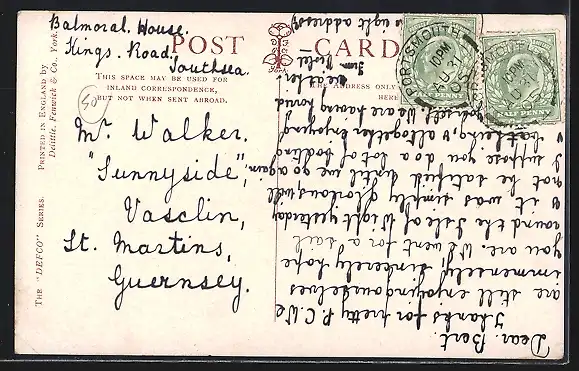 Balmoral House.
Kings. Road.
Southsea.
POST CARD
THIS SPACE MAY BE USED FOR
INLAND CORRESPONDENCE,
BUT NOT WHEN SENT ABROAD.
HERE
50
Mr. Walker.
"Sunnyside",
Vasclin,
St. Martins,
Guernsey.
THE "DEFCO" SERIES.
PRINTED IN ENGLAND by
Delittle, Fenwick & Co., York.
PORTSMOUTH
10PM
AU 31
05
Dear. Bert
Thanks for pretty P.C. We
are still enjoying ourselves
immensely, sincerely hope
you are. We went for a sail
round the Isle of Wight yesterday
& it was simply glorious, will
not be satisfied until we go again.
I suppose you do a lot of boating
bathing, & altogether enjoying
yourself. We are having
weather
from
Violet
right address